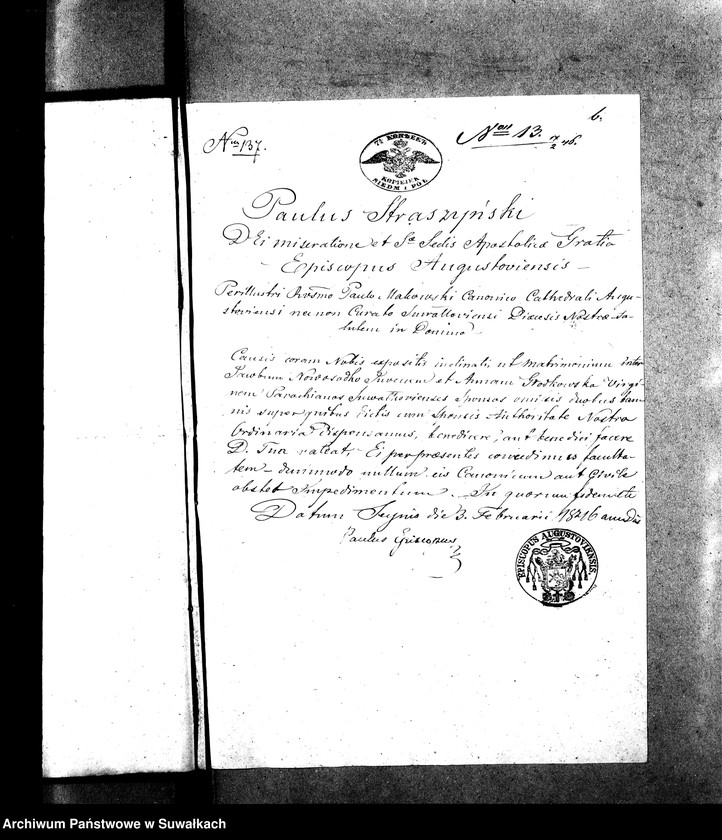 6.
Nrus 137.
7½ КОПѢЕКЪ
KOPIEJEK
SIEDM I PÓŁ
Nall 13. 46.
Paulus Straszyński
DEi miseratione et Sæ Sedis Apostolicæ Gratia
Episcopus Augustoviensis
Perillustri Rvsmo Paulo Makowski Canonico Cathedrali Augu-
stoviensi necnon Curato Suvalloviensi Diæcesis Nostræ sa-
lutem in Domino
Causis coram Nobis expositis inclinati, ut Matrimonium inter
Jacobum Nowosadko Juvenem et Annam Grodkowska Virgi-
nem Parochianos Suwalkovienses Sponsos omissis duobus ban-
nis super quibus dictis cum Sponsis Authoritate Nostra
Ordinaria dispensamus, benedicere, aut benedici facere
D. Tua valeat, Ei per præsentes concedimus faculta-
tem dummodo nullum eis Canonicum aut Civile
obstet Impedimentum. In quorum fidem
Datum Seynis die 3. Februarii 1846 anno Dni
Paulus Episcopus
EPISCOPUS AUGUSTOVIENSIS.
Archiwum Państwowe w Suwałkach